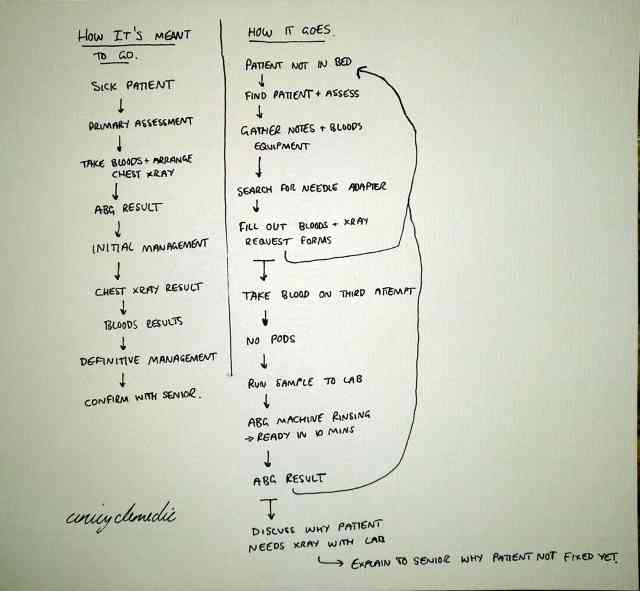 HOW IT'S MEANT
TO GO.
SICK PATIENT
PRIMARY ASSESSMENT
TAKE BLOODS + ARRANGE
CHEST XRAY
ABG RESULT
INITIAL MANAGEMENT
CHEST XRAY RESULT
BLOODS RESULTS
DEFINITIVE MANAGEMENT
CONFIRM WITH SENIOR.
unicyclemedic
HOW IT GOES
PATIENT NOT IN BED
FIND PATIENT + ASSESS
GATHER NOTES + BLOODS
EQUIPMENT
SEARCH FOR NEEDLE ADAPTER
FILL OUT BLOODS + XRAY
REQUEST FORMS
TAKE BLOOD ON THIRD ATTEMPT
NO PODS
RUN SAMPLE TO LAB
ABG MACHINE RINSING
→ READY IN 10 MINS
ABG RESULT
DISCUSS WHY PATIENT
NEEDS XRAY WITH LAB
EXPLAIN TO SENIOR WHY PATIENT NOT FIXED YET.